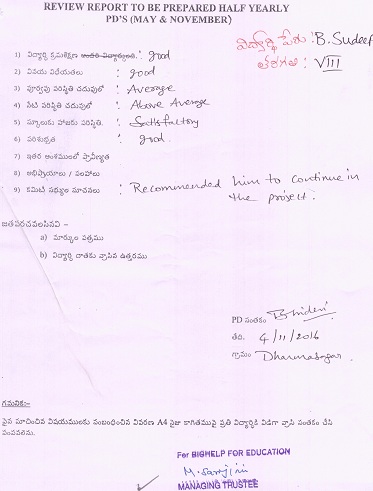 REVIEW REPORT TO BE PREPARED HALF YEARLY
PD'S (MAY & NOVEMBER)
విద్యార్థి పేరు : B. Sudeep
తరగతి : VIII
1) విద్యార్థి క్రమశిక్షణ : good
2) వినయ విధేయతలు : good
3) పూర్వపు పరిస్థితి చదువులో : Average
4) నేటి పరిస్థితి చదువులో : Above Average
5) స్కూలుకు హాజరు పరిస్థితి. : Satisfactory
6) పరిశుభ్రత : good.
7) ఇతర అంశములలో ప్రావీణ్యత
8) అభిప్రాయాలు / సలహాలు
9) కమిటి సభ్యుల సూచనలు : Recommended him to continue in
the project.
జతపరచవలసినవి –
a) మార్కుల పత్రము
b) విద్యార్థి దాతకు వ్రాసిన ఉత్తరము
PD సంతకం
తేది. 4/11/2016
గ్రామం Dharmasagar.
గమనిక:-
పైన సూచించిన విషయములకు సంబంధించిన వివరణ A4 సైజు కాగితముపై ప్రతి విద్యార్థికి విడిగా వ్రాసి సంతకం చేసి
పంపవలెను.
For BIGHELP FOR EDUCATION
M. Sarojini
MANAGING TRUSTEE